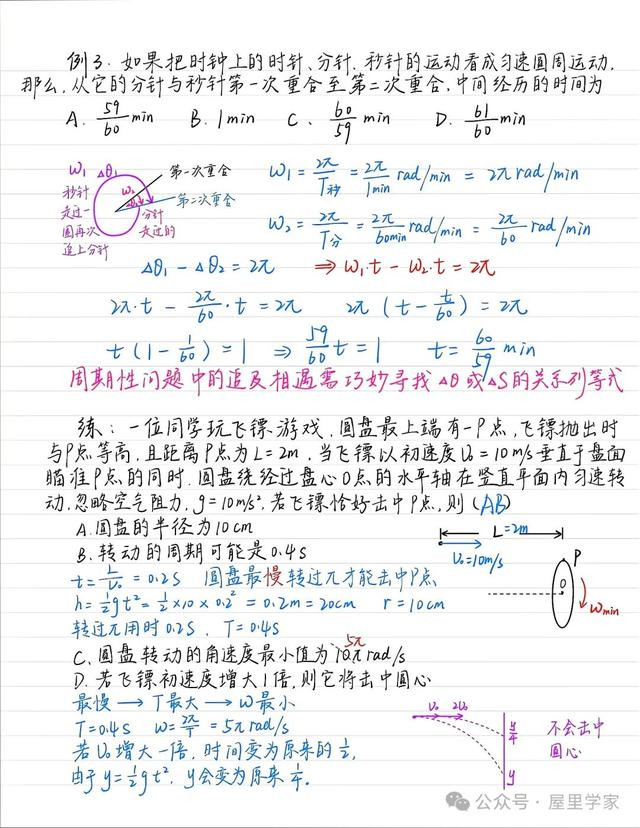 例3. 如果把时钟上的时针、分针、秒针的运动看成匀速圆周运动.
那么,从它的分针与秒针第一次重合至第二次重合,中间经历的时间为
A. 59/60 min B. 1min C. 60/59 min D. 61/60 min
ω₁ Δθ₁
秒针
走过一
圆再次
追上分针
ω₂
分针
走过的
第一次重合
第二次重合
ω₁ = 2π/T秒 = 2π/1min rad/min = 2π rad/min
ω₂ = 2π/T分 = 2π/60min rad/min = 2π/60 rad/min
Δθ₁ - Δθ₂ = 2π ⇒ ω₁·t - ω₂·t = 2π
2π·t - 2π/60·t = 2π 2π(t - t/60) = 2π
t(1 - 1/60) = 1 ⇒ 59/60 t = 1 t = 60/59 min
周期性问题中的追及相遇需巧妙寻找Δθ或ΔS的关系列等式
练: 一位同学玩飞镖游戏,圆盘最上端有一P点,飞镖抛出时
与P点等高,且距离P点为L=2m,当飞镖以初速度υ₀=10m/s垂直于盘面
瞄准P点的同时,圆盘绕经过盘心O点的水平轴在竖直平面内匀速转
动.忽略空气阻力,g=10m/s²,若飞镖恰好击中P点,则(AB)
A.圆盘的半径为10cm
B.转动的周期可能是0.4s
L=2m
υ₀=10m/s
P
O
ωmin
t = L/υ₀ = 0.2s 圆盘最慢转过π才能击中P点
h = ½gt² = ½×10×0.2² = 0.2m = 20cm r=10cm
转过π用时0.2s, T=0.4s
C.圆盘转动的角速度最小值为10π rad/s
5π
D.若飞镖初速度增大1倍,则它将击中圆心
最慢 → T最大 → ω最小
T=0.4s ω=2π/T = 5π rad/s
若υ₀增大一倍,时间变为原来的½,
由于y=½gt², y会变为原来¼.
υ₀ 2υ₀
y/4
y
不会击中
圆心
公众号·屋里学家